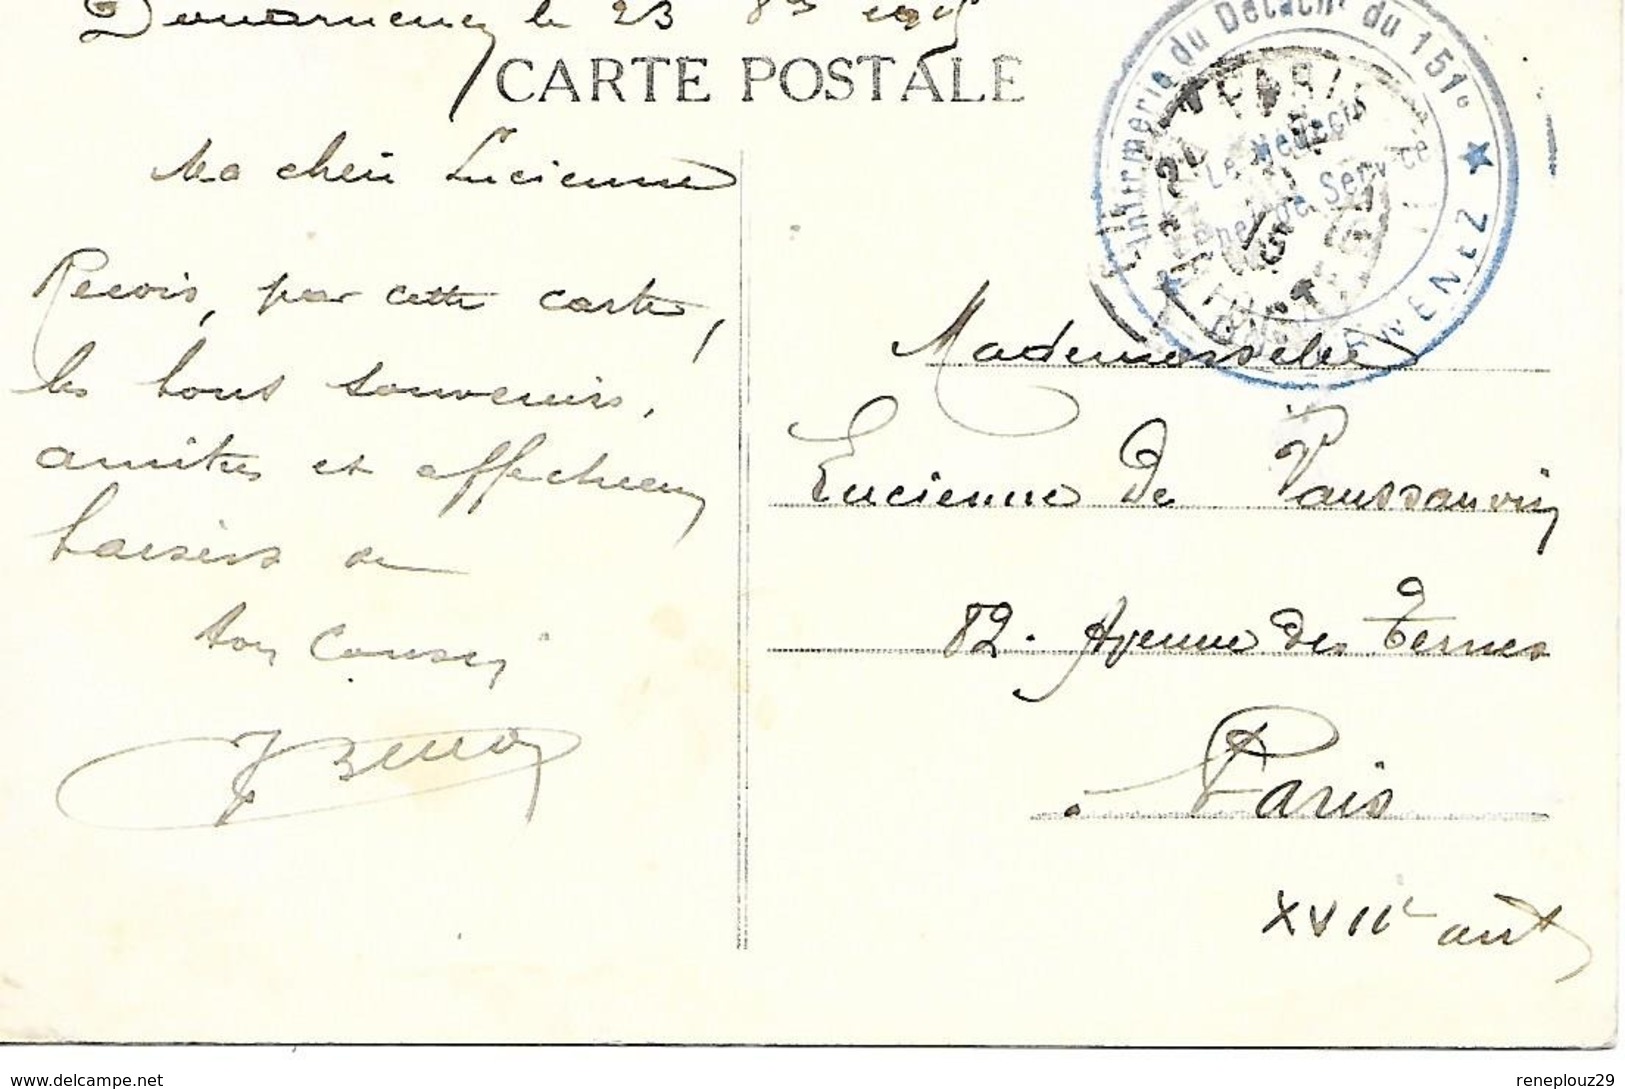 Douarnenez le 23 8bre 1915
CARTE POSTALE
Infirmerie du Détacht du 151e ★
Le Médecin
Chef de Service
Ma chère Lucienne
Reçois, par cette carte,
les bons souvenirs,
amitiés et affectueux
baisers de
ton Cousin
Mademoiselle
Lucienne De Paussauvin
82. Avenue des Ternes
à Paris
XVIIe arrt
www.delcampe.net
reneplouz29